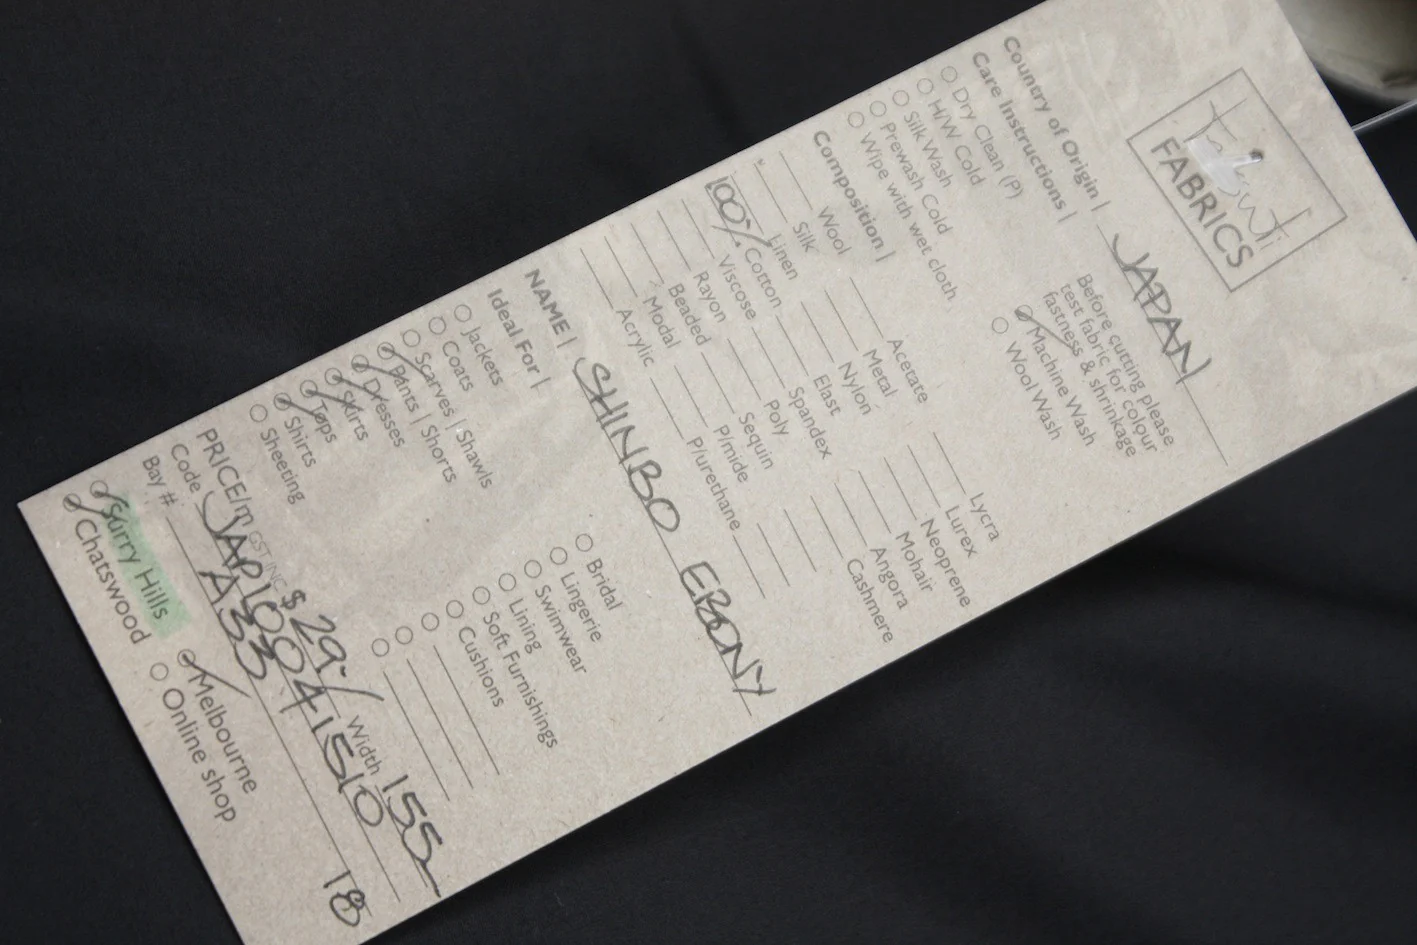 Tessuti
FABRICS
Country of Origin | JAPAN
Care Instructions |
Before cutting please
test fabric for colour
fastness & shrinkage
Dry Clean (P)
H/W Cold
Silk Wash
Prewash Cold
Wipe with wet cloth
Machine Wash
Wool Wash
Composition |
Wool
Silk
Linen
100% Cotton
Viscose
Rayon
Beaded
Modal
Acrylic
Acetate
Metal
Nylon
Elast
Spandex
Poly
Sequin
P/mide
P/urethane
Lycra
Lurex
Neoprene
Mohair
Angora
Cashmere
NAME | SHINBO EBONY
Ideal For |
Jackets
Coats
Scarves | Shawls
Pants | Shorts
Dresses
Skirts
Tops
Shirts
Sheeting
Bridal
Lingerie
Swimwear
Lining
Soft Furnishings
Cushions
PRICE/m GST INC $ 29- Width 155
Code JAP10041510
Bay # A33 18
Surry Hills
Chatswood
Melbourne
Online shop